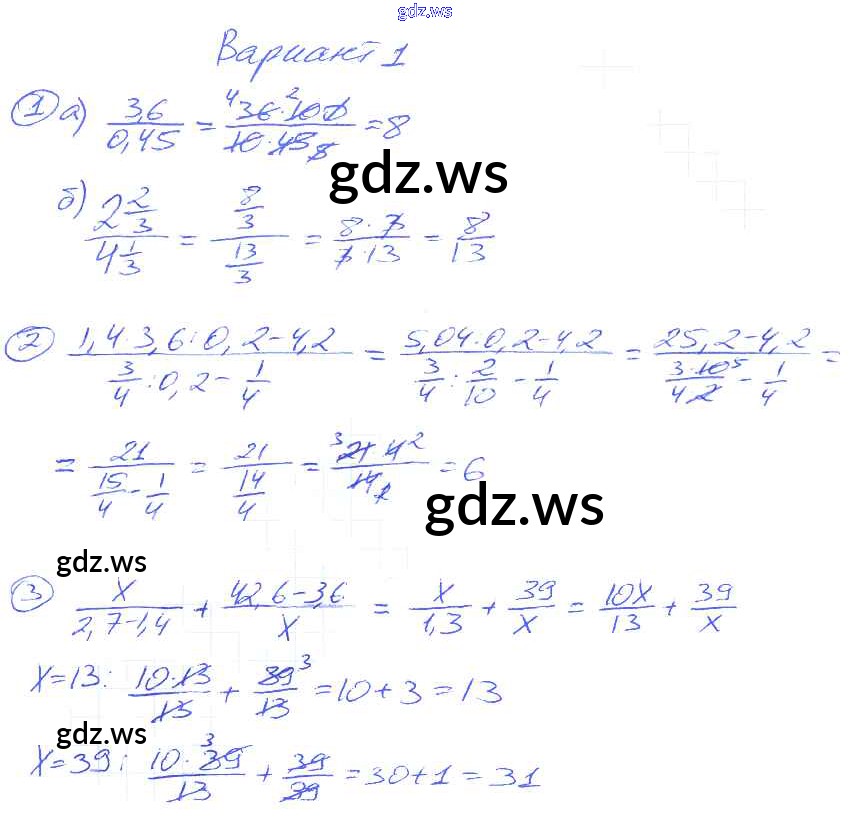 gdz.ws
Вариант 1
① а) 3,6/0,45 = 36·100/10·45 = 8
gdz.ws
б) 2 2/3 / 4 1/3 = 8/3 / 13/3 = 8·3/3·13 = 8/13
② 1,4·3,6:0,2-4,2 / 3/4:0,2-1/4 = 5,04:0,2-4,2 / 3/4:2/10-1/4 = 25,2-4,2 / 3·10/4·2-1/4 =
= 21 / 15/4-1/4 = 21 / 14/4 = 21·4/14 = 6
gdz.ws
gdz.ws
③ x/2,7-1,4 + 42,6-3,6/x = x/1,3 + 39/x = 10x/13 + 39/x
x=13: 10·13/13 + 39/13 = 10+3 = 13
gdz.ws
x=39: 10·39/13 + 39/39 = 30+1 = 31